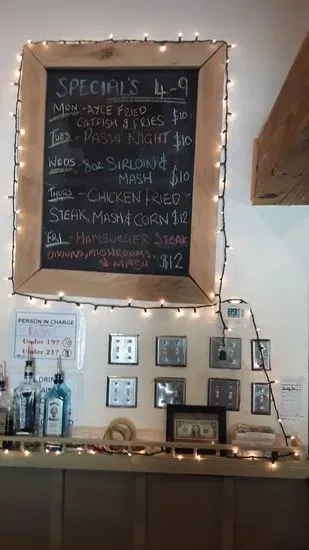 SPECIAL'S 4-9
MON - AYCE FRIED
CATFISH & FRIES $10
TUES - PASTA NIGHT $10
WEDS - 8oz SIRLOIN &
MASH $10
THURS - CHICKEN FRIED
STEAK, MASH & CORN $12
FRI - HAMBURGER STEAK
ONIONS, MUSHROOMS
& MASH $12
PERSON IN CHARGE
Under 19?
Under 21?
DRINK